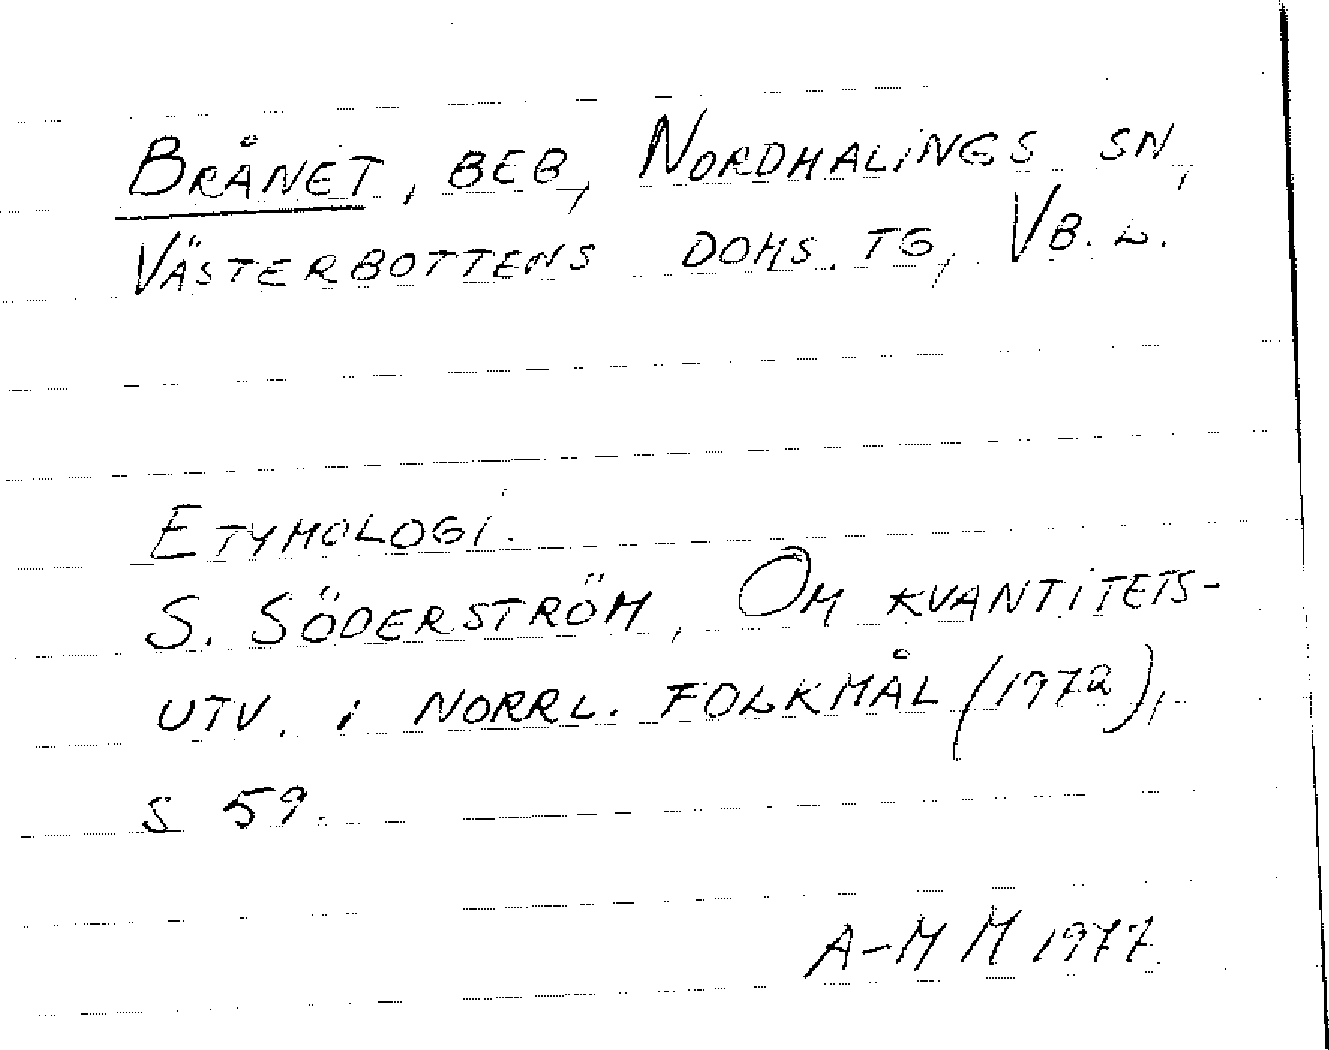 BRÅNET, BEB, NORDMALINGS SN,
VÄSTERBOTTENS DOMS. TG, VB. L.
ETYMOLOGI.
S. SÖDERSTRÖM, OM KVANTITETS-
UTV. i NORRL. FOLKMÅL (1972),
S 59.
A-M M 1977